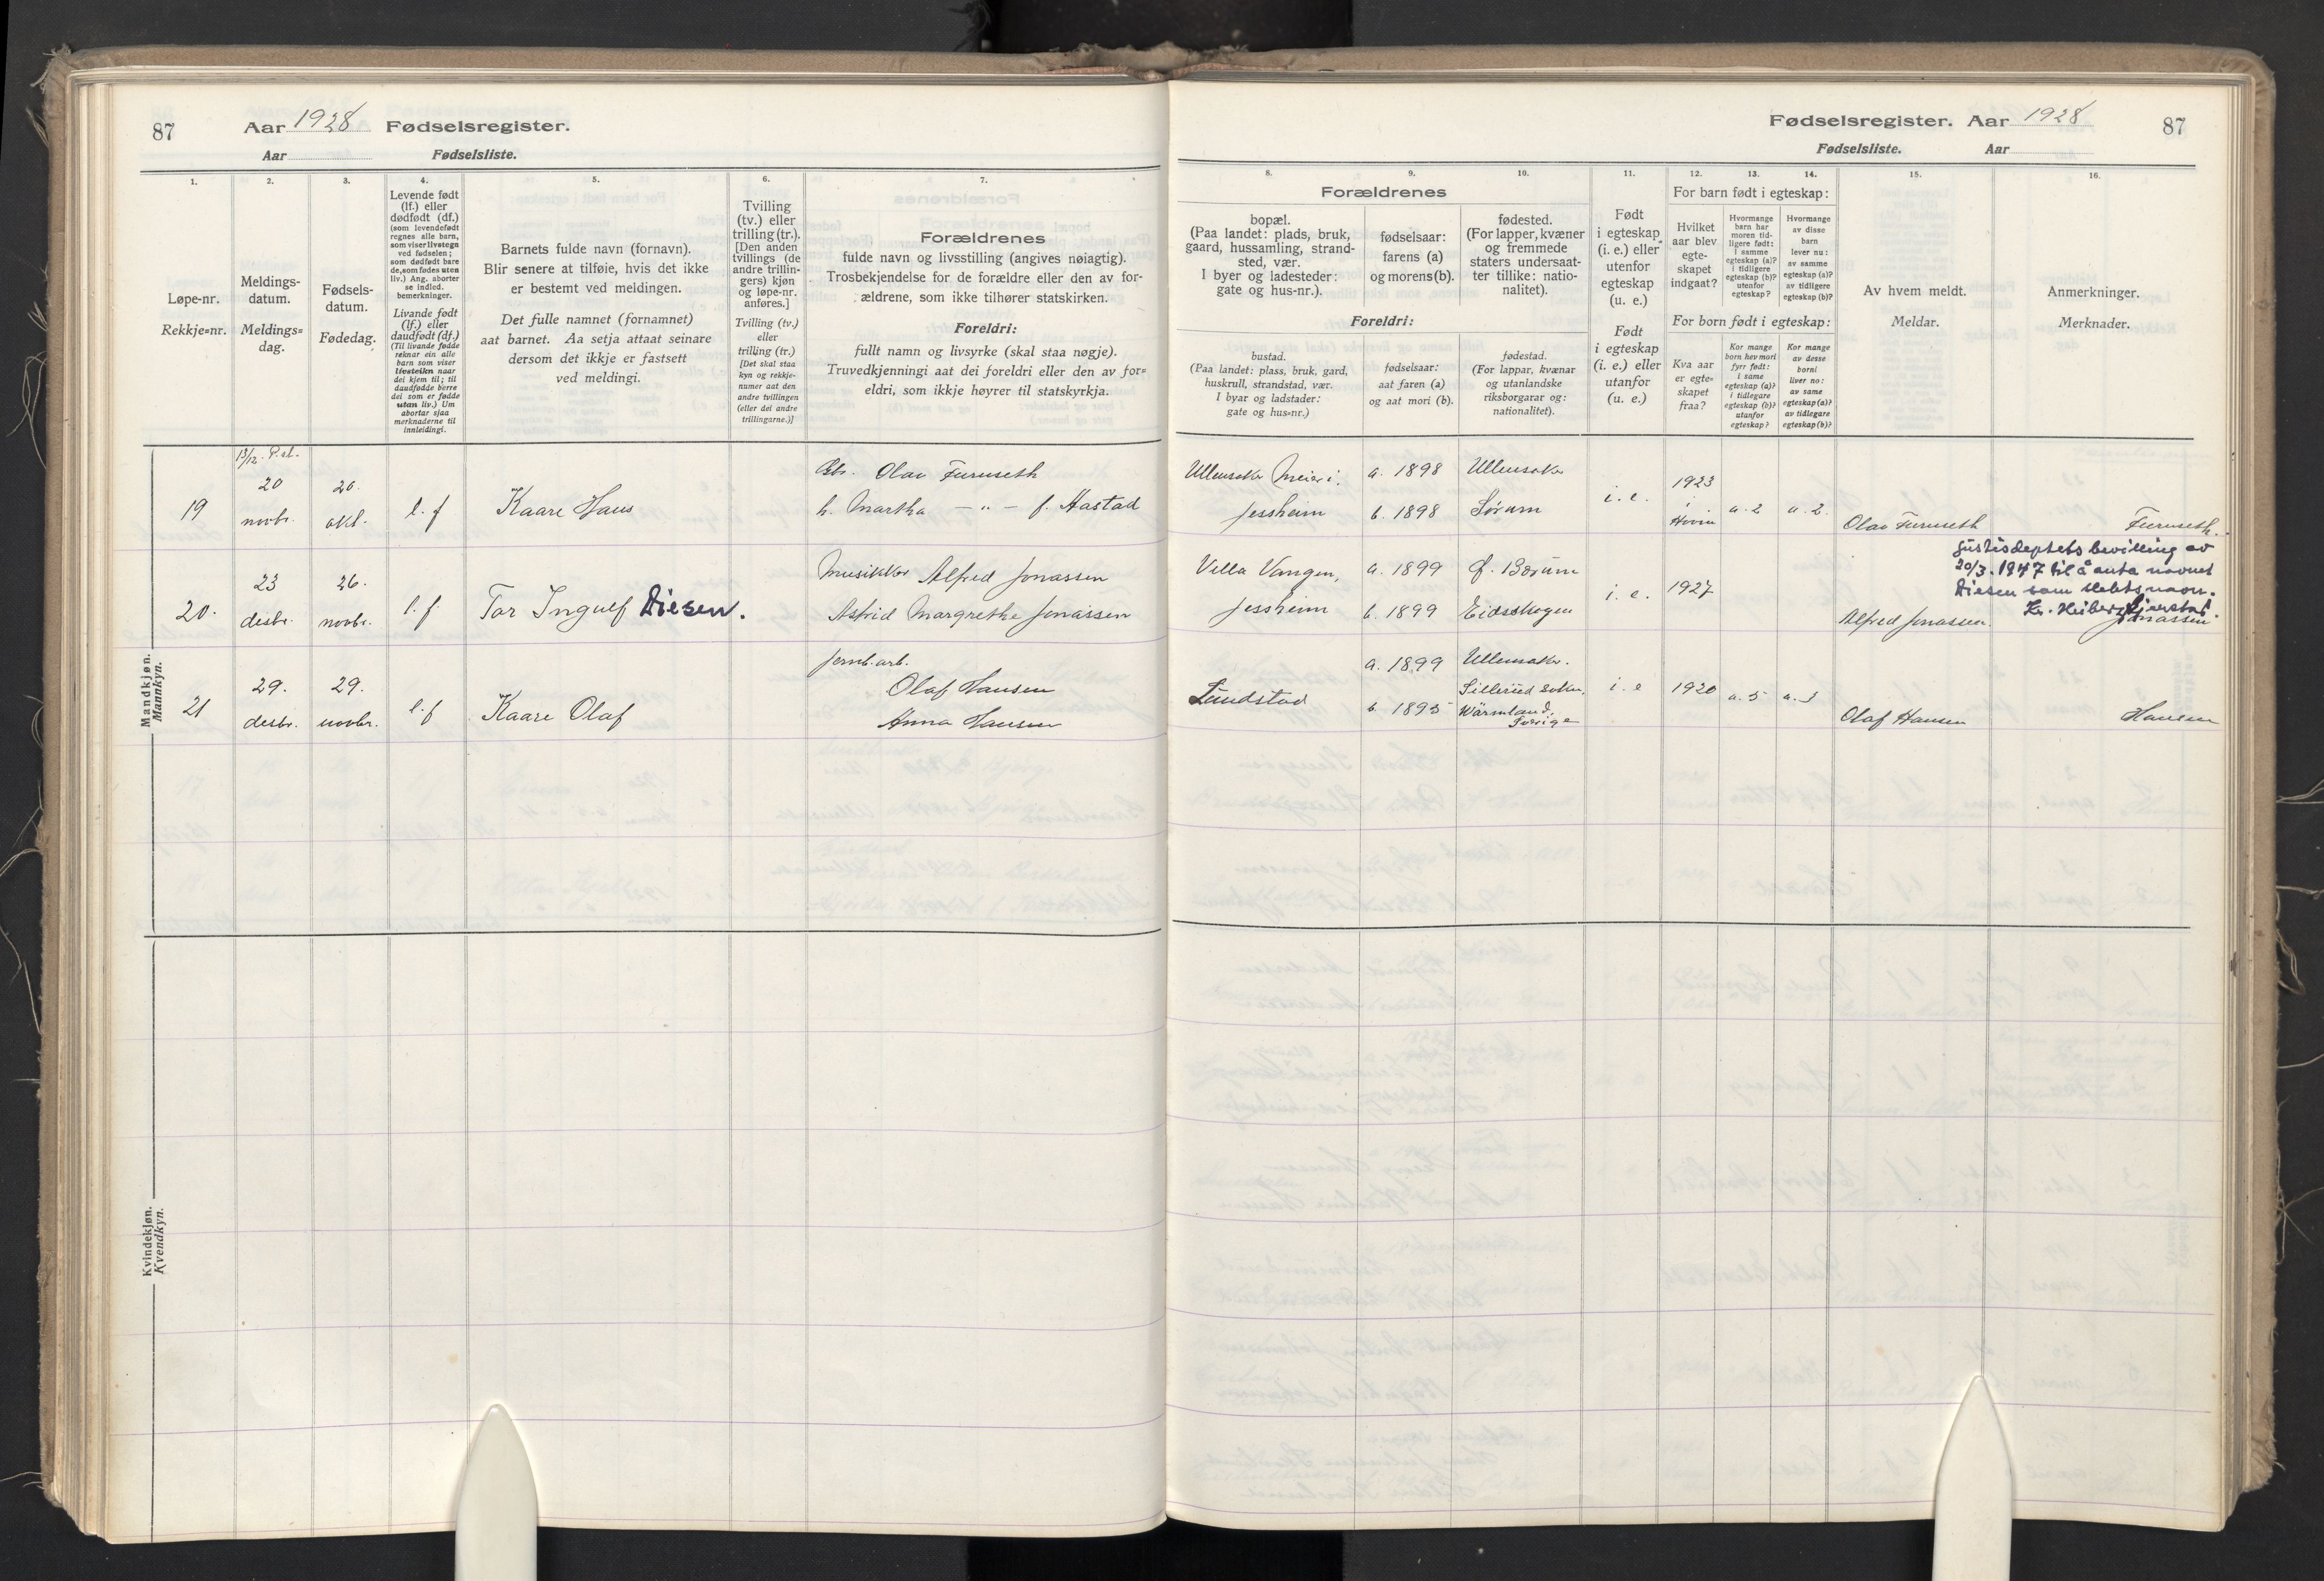 87
Aar 1928 Fødselsregister.
Aar Fødselsliste.
1.
2.
3.
4.
5.
6.
7.
Løpe-nr.
Rekkje=nr.
Meldings-
datum.
Meldings=
dag.
Fødsels-
datum.
Fødedag.
Levende født
(lf.) eller
dødfødt (df.)
(som levendefødt
regnes alle barn,
som viser livstegn
ved fødselen;
som dødfødt bare
de, som fødes uten
liv.) Ang. aborter
se indled.
bemerkninger.
Livande født
(lf.) eller
daudfødt (df.)
(Til livande fødde
reknar ein alle
barn som viser
livsteikn naar
dei kjem til; til
daudfødde berre
dei som er fødde
utan liv.) Um
abortar sjaa
merknaderne til
innleidingi.
Barnets fulde navn (fornavn).
Blir senere at tilføie, hvis det ikke
er bestemt ved meldingen.
Det fulle namnet (fornamnet)
aat barnet. Aa setja attaat seinare
dersom det ikkje er fastsett
ved meldingi.
Tvilling
(tv.) eller
trilling (tr.).
[Den anden
tvillings (de
andre trillin-
gers) kjøn
og løpe-nr.
anføres.]
Tvilling (tv.)
eller
trilling (tr.)
[Det skal staa
kyn og rekkje-
numer aat den
andre tvillingen
(eller dei andre
trillingarne.)]
Forældrenes
fulde navn og livsstilling (angives nøiagtig).
Trosbekjendelse for de forældre eller den av for-
ældrene, som ikke tilhører statskirken.
Foreldri:
fullt namn og livsyrke (skal staa nøgje).
Truvedkjenningi aat dei foreldri eller den av for=
eldri, som ikkje høyrer til statskyrkja.
Mandkjøn.
Mannkyn.
13/12. P.st.
19
20
novbr.
20.
okt.
l. f
Kaare Hans
Olav Furuseth
h. Martha — „ — f. Hastad
20.
23
desbr.
26.
novbr.
l. f.
Tor Ingulf Diesen.
Musikker Alfred Jonassen
Astrid Margrethe Jonassen
21
29.
desbr.
29.
novbr.
l. f
Kaare Olaf
jernb. arb.
Olaf Hansen
Anna Hansen
Kvindekjøn.
Kvendkyn.
Fødselsregister. Aar 1928
87
Fødselsliste. Aar
8.
9.
10.
11.
12.
13.
14.
15.
16.
Forældrenes
bopæl.
(Paa landet: plads, bruk,
gaard, hussamling, strand-
sted, vær.
I byer og ladesteder:
gate og hus-nr.).
fødselsaar:
farens (a)
og morens (b).
fødested.
(For lapper, kvæner
og fremmede
staters undersaat-
ter tillike: natio-
nalitet).
Foreldri:
bustad.
(Paa landet: plass, bruk, gard,
huskrull, strandstad, vær.
I byar og ladstader:
gate og hus=nr.)
fødselsaar:
aat faren (a)
og aat mori (b).
fødestad.
(For lappar, kvænar
og utanlandske
riksborgarar og:
nationalitet).
Født
i egteskap
(i. e.) eller
utenfor
egteskap
(u. e.)
Født
i egteskap
(i. e.) eller
utanfor
egteskap
(u. e.)
For barn født i egteskap:
Hvilket
aar blev
egte-
skapet
indgaat?
Hvormange
barn har
moren tid-
ligere født:
i samme
egteskap (a)?
i tidligere
egteskap (b)?
utenfor
egteskap?
Hvormange
av disse
barn
lever nu:
av samme
egteskap (a)?
av tidligere
egteskap (b)?
For born født i egteskap:
Kva aar
er egte=
skapet
fraa?
Kor mange
born hev mori
fyrr født:
i same
egteskap (a)?
i tidlegare
egteskap (b)?
utanfor
egteskap?
Kor mange
av desse
borni
liver no:
av same
egteskap (a)?
av tidlegare
egteskap (b)?
Av hvem meldt.
Meldar.
Anmerkninger.
Merknader.
Ullensaker Meieri.
Jessheim
a. 1898
b. 1898
Ullensaker
Sørum
i. e.
1923
i
Hovin
a. 2
a. 2.
Olav Furuseth
Furuseth.
Villa Vangen,
Jessheim
a. 1899
b. 1899
Ø. Bærum
Eidskogen
i. e.
1927
Alfred Jonassen.
Justisdeptets bevilling av
20/3.1947 til å anta navnet
Diesen som slektsnavn.
Jonassen
Lundstad
a. 1899
b. 1895
Ullensaker.
Sillerud sokn,
Wärmland,
Sverige
i. e
1920
a. 5
a. 3
Olaf Hansen
Hansen